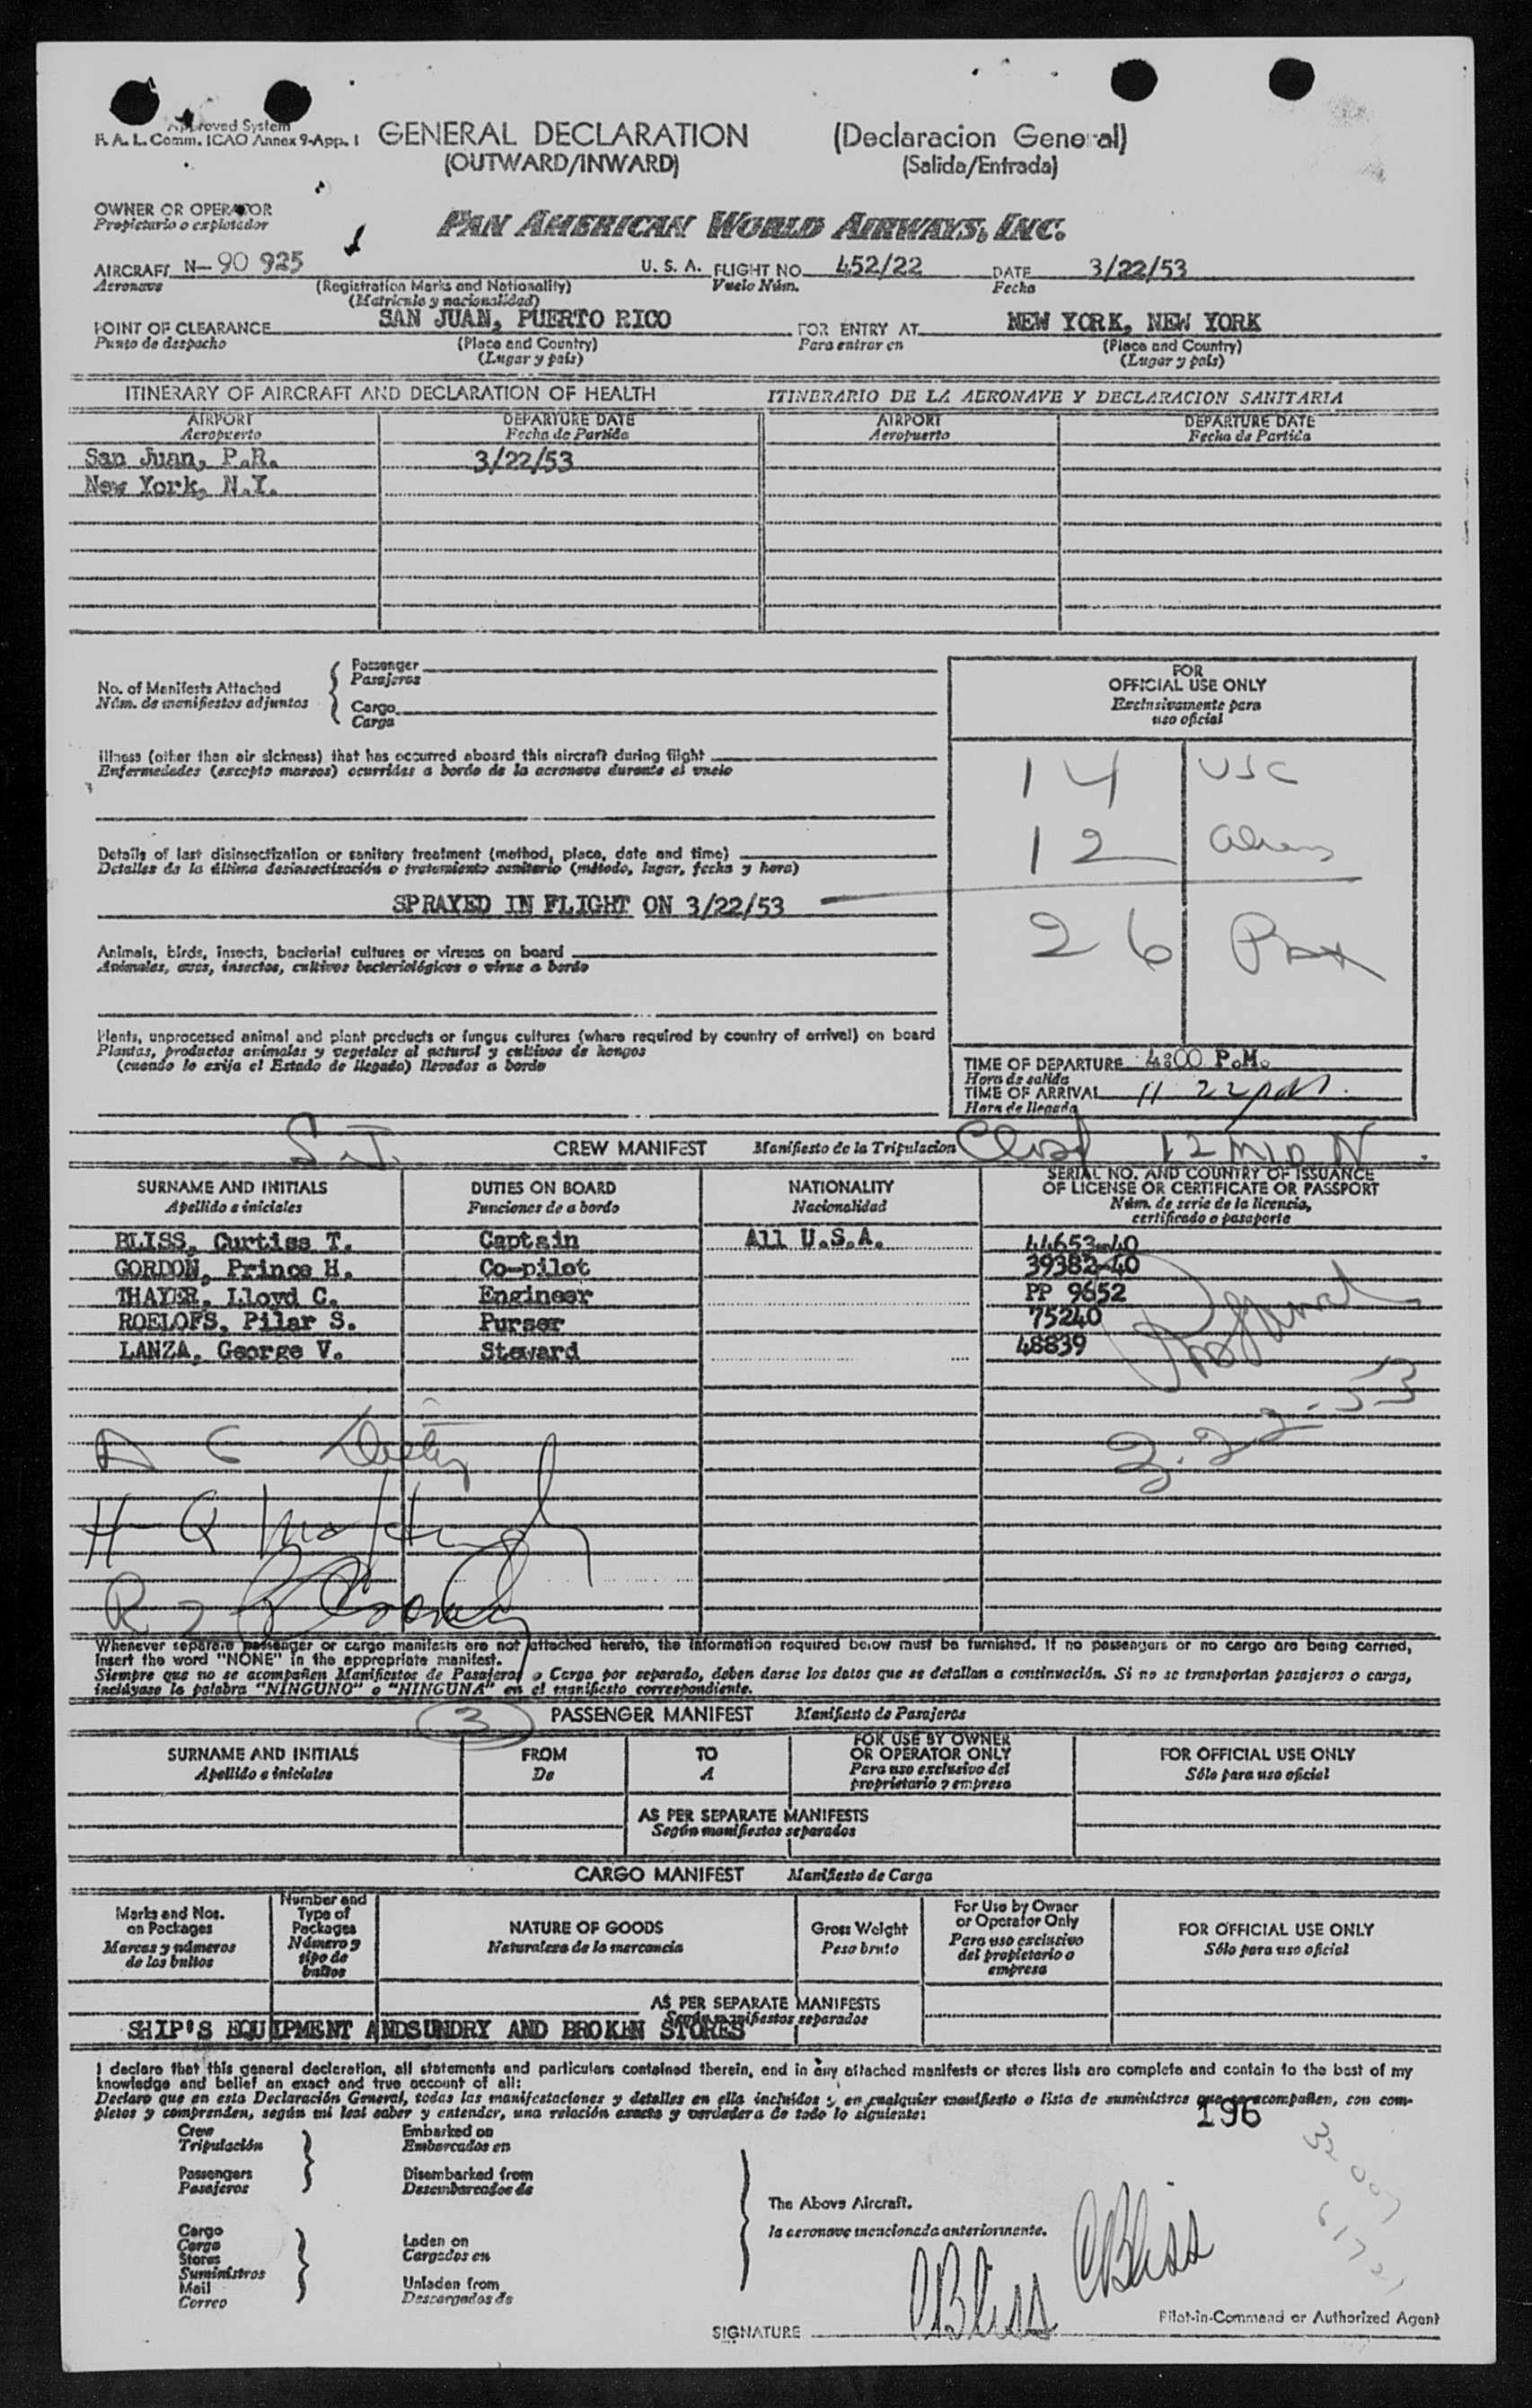 Approved System
F. A. L. Comm. ICAO Annex 9-App. 1
GENERAL DECLARATION (Declaracion General)
(OUTWARD/INWARD) (Salida/Entrada)
OWNER OR OPERATOR
Propietario o explotador
PAN AMERICAN WORLD AIRWAYS, INC.
AIRCRAFT N-90 925 U. S. A. FLIGHT NO. 452/22 DATE 3/22/53
Aeronave (Registration Marks and Nationality) Vuelo Núm. Fecha
(Matricula y nacionalidad)
POINT OF CLEARANCE SAN JUAN, PUERTO RICO FOR ENTRY AT NEW YORK, NEW YORK
Punto de despacho (Place and Country) Para entrar en (Place and Country)
(Lugar y país) (Lugar y país)
ITINERARY OF AIRCRAFT AND DECLARATION OF HEALTH ITINERARIO DE LA AERONAVE Y DECLARACION SANITARIA
AIRPORT DEPARTURE DATE AIRPORT DEPARTURE DATE
Aeropuerto Fecha de Partida Aeropuerto Fecha de Partida
San Juan, P.R. 3/22/53
New York, N.Y.
No. of Manifests Attached
Núm. de manifiestos adjuntos
Passenger
Pasajeros
Cargo
Carga
FOR
OFFICIAL USE ONLY
Exclusivamente para
uso oficial
14 USC
12 Aliens
26 Pax
Illness (other than air sickness) that has occurred aboard this aircraft during flight
Enfermedades (excepto mareos) ocurridas a bordo de la aeronave durante el vuelo
Details of last disinsectization or sanitary treatment (method, place, date and time)
Detalles de la última desinsectización o tratamiento sanitario (método, lugar, fecha y hora)
SPRAYED IN FLIGHT ON 3/22/53
Animals, birds, insects, bacterial cultures or viruses on board
Animales, aves, insectos, cultivos bacteriológicos o virus a bordo
Plants, unprocessed animal and plant products or fungus cultures (where required by country of arrival) on board
Plantas, productos animales y vegetales al natural y cultivos de hongos
(cuando lo exija el Estado de llegada) llevados a bordo
TIME OF DEPARTURE 4:00 P.M.
Hora de salida
TIME OF ARRIVAL 11 22 pm.
Hora de llegada
S.J. CREW MANIFEST Manifiesto de la Tripulacion 12 MID N
SURNAME AND INITIALS DUTIES ON BOARD NATIONALITY SERIAL NO. AND COUNTRY OF ISSUANCE
OF LICENSE OR CERTIFICATE OR PASSPORT
Apellido e iniciales Funciones de a bordo Nacionalidad Núm. de serie de la licencia,
certificado o pasaporte
BLISS, Curtiss T. Captain All U.S.A. 44653-40
GORDON, Prince H. Co-pilot 39382-40
THAYER, Lloyd C. Engineer PP 9652
ROELOFS, Pilar S. Purser 75240
LANZA, George V. Steward 48839
3-22-53
Whenever separate passenger or cargo manifests are not attached hereto, the information required below must be furnished. If no passengers or no cargo are being carried,
insert the word "NONE" in the appropriate manifest.
Siempre que no se acompañen Manifiestos de Pasajeros o Carga por separado, deben darse los datos que se detallan a continuación. Si no se transportan pasajeros o carga,
inclúyase la palabra "NINGUNO" o "NINGUNA" en el manifiesto correspondiente.
3 PASSENGER MANIFEST Manifiesto de Pasajeros
SURNAME AND INITIALS FROM TO FOR USE BY OWNER
OR OPERATOR ONLY FOR OFFICIAL USE ONLY
Apellido e iniciales De A Para uso exclusivo del
propietario o empresa Sólo para uso oficial
AS PER SEPARATE MANIFESTS
Según manifiestos separados
CARGO MANIFEST Manifiesto de Carga
Marks and Nos.
on Packages
Marcas y números
de los bultos
Number and
Type of
Packages
Número y
tipo de
bultos
NATURE OF GOODS
Naturaleza de la mercancía
Gross Weight
Peso bruto
For Use by Owner
or Operator Only
Para uso exclusivo
del propietario o
empresa
FOR OFFICIAL USE ONLY
Sólo para uso oficial
AS PER SEPARATE MANIFESTS
Según manifiestos separados
SHIP'S EQUIPMENT ANDSUNDRY AND BROKEN STORES
I declare that this general declaration, all statements and particulars contained therein, and in any attached manifests or stores lists are complete and contain to the best of my
knowledge and belief an exact and true account of all:
Declaro que en esta Declaración General, todas las manifestaciones y detalles en ella incluídos y en cualquier manifiesto o lista de suministros que se acompañen, son com-
pletos y comprenden, según mi leal saber y entender, una relación exacta y verdadera de todo lo siguiente:
196
Crew
Tripulación
Passengers
Pasajeros
Embarked on
Embarcados en
Disembarked from
Desembarcados de
Cargo
Carga
Stores
Suministros
Mail
Correo
Laden on
Cargados en
Unladen from
Descargados de
The Above Aircraft.
la aeronave mencionada anteriormente.
CBliss
SIGNATURE CBliss
Pilot-in-Command or Authorized Agent